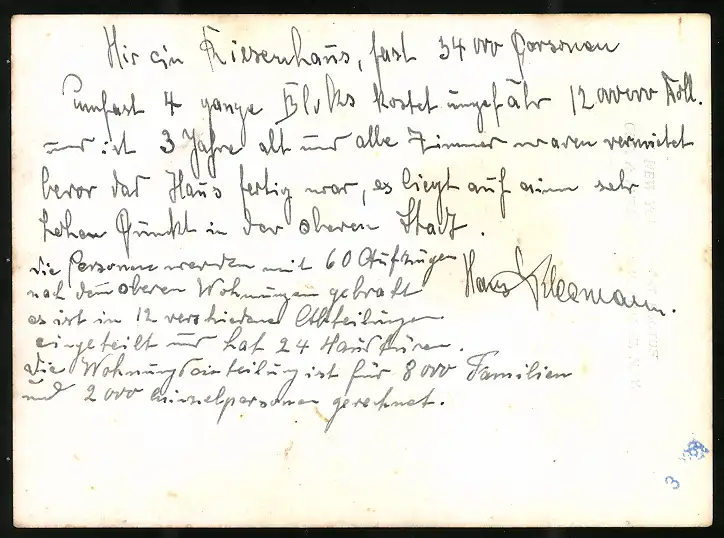 Hir ein Riesenhaus, fast 34 000 Personen
umfast 4 ganze Bloks kostet ungefähr 12 000000 Doll.
und ist 3 Jahre alt und alle Zimmer waren vermietet
bevor das Haus fertig war, es liegt auf einen sehr
hohen Punkt in der oberen Stadt.
die Personen werden mit 60 Aufzügen
nach den oberen Wohnungen gebracht
es ist in 12 verschiedene Abteilungen
eingeteilt und hat 24 Haustüren.
die Wohnungseinteilung ist für 8000 Familien
und 2000 Einzelpersonen gerechnet.
Hans Kleemann.
3